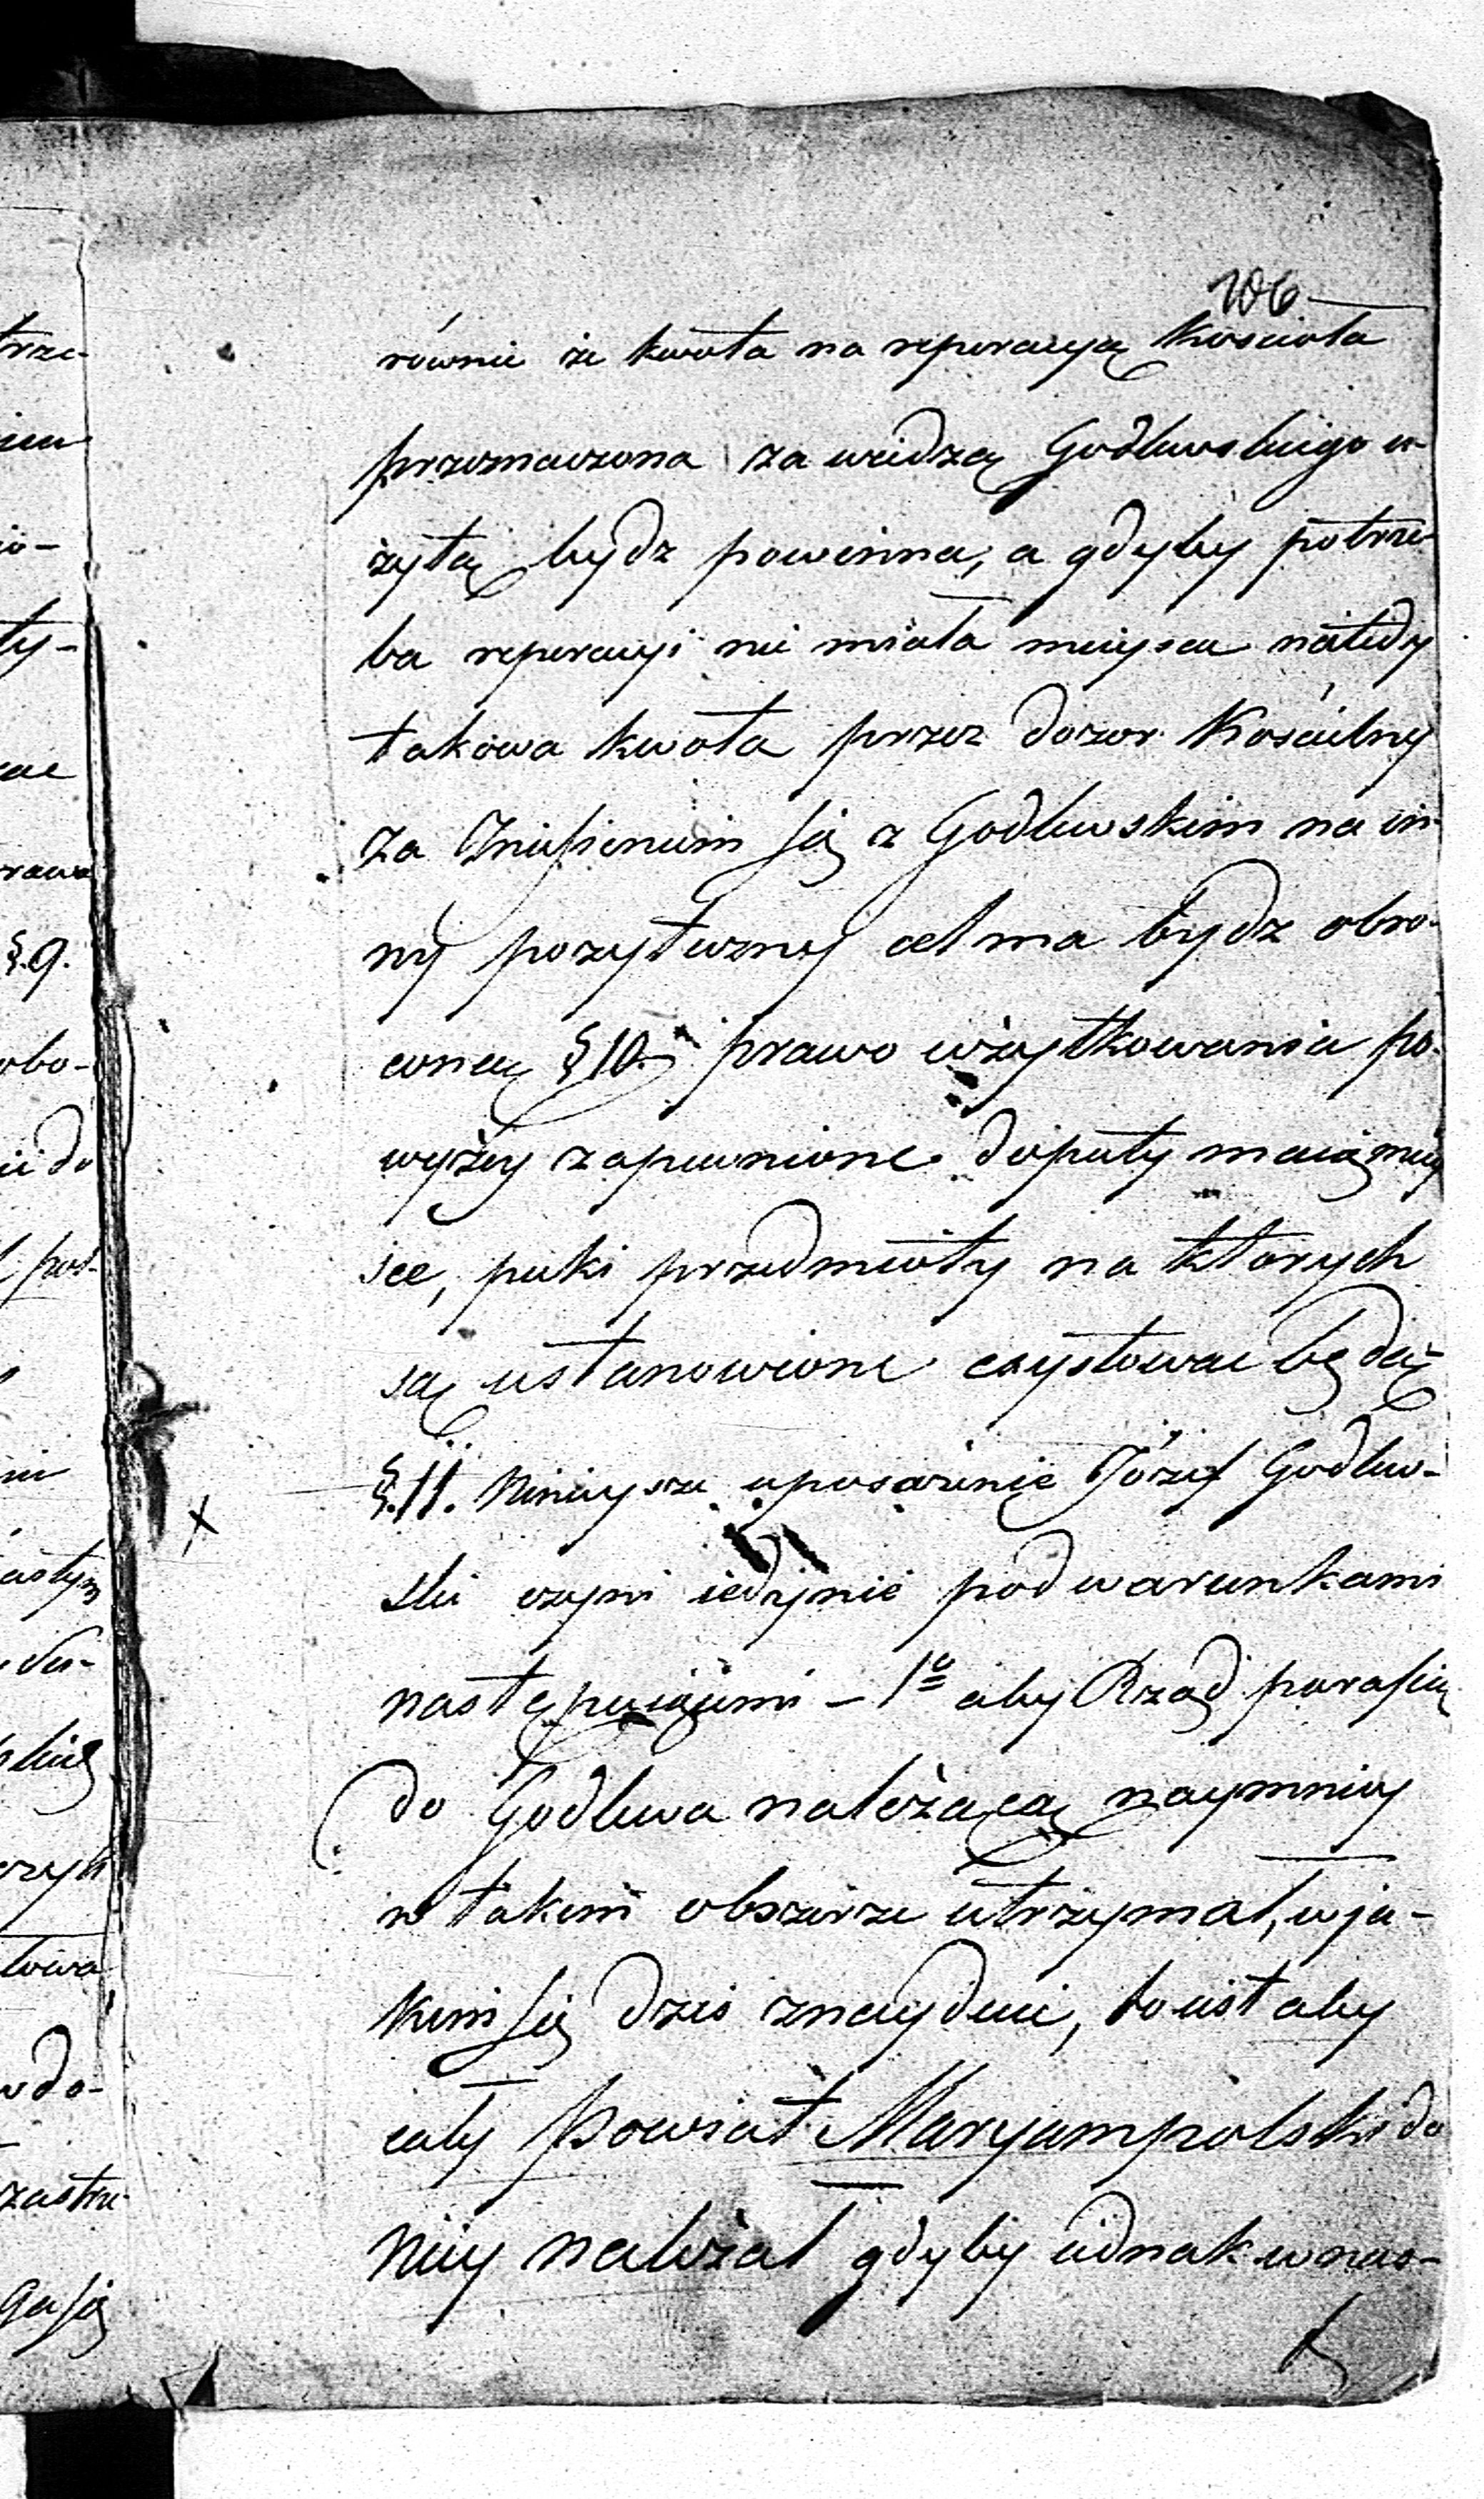 106
równie że kwota na reperacyą Kościoła
przeznaczona za wiedzą Godlewskiego u-
żytą bydz powinna, a gdyby potrze-
ba reperacyi nie miała mieysca natedy
takowa kwota przez dozor Kościelny
za Zniesieniem się z Godlewskim na in-
ny pozyteczny cel ma bydz obro-
coną §10. prawo użytkowania po-
wyżey zapewnione deputy maią miey
sce, puki przedmioty na ktorych
są ustanowione exystowac będą
§.11. Ninieysze uposażenie Józef Godlew-
ski czyni iedynie pod warunkami
następuiącemi – 1º aby Rząd parafią
do Godlewa należącą naymniey
w takim obszerze utrzymał, w ja-
kim się dzis znayduie, to iest aby
cały Powiat Maryampolski do
Niey należał gdyby iednak w nas-
trze-
io-
ty-
rawa
§.9.
obo-
ie do
wdo-